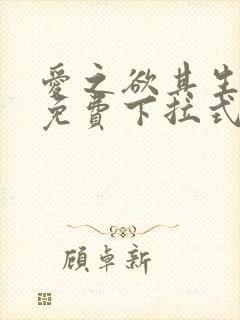 愛之欲其生
免費下拉式
顧卓新